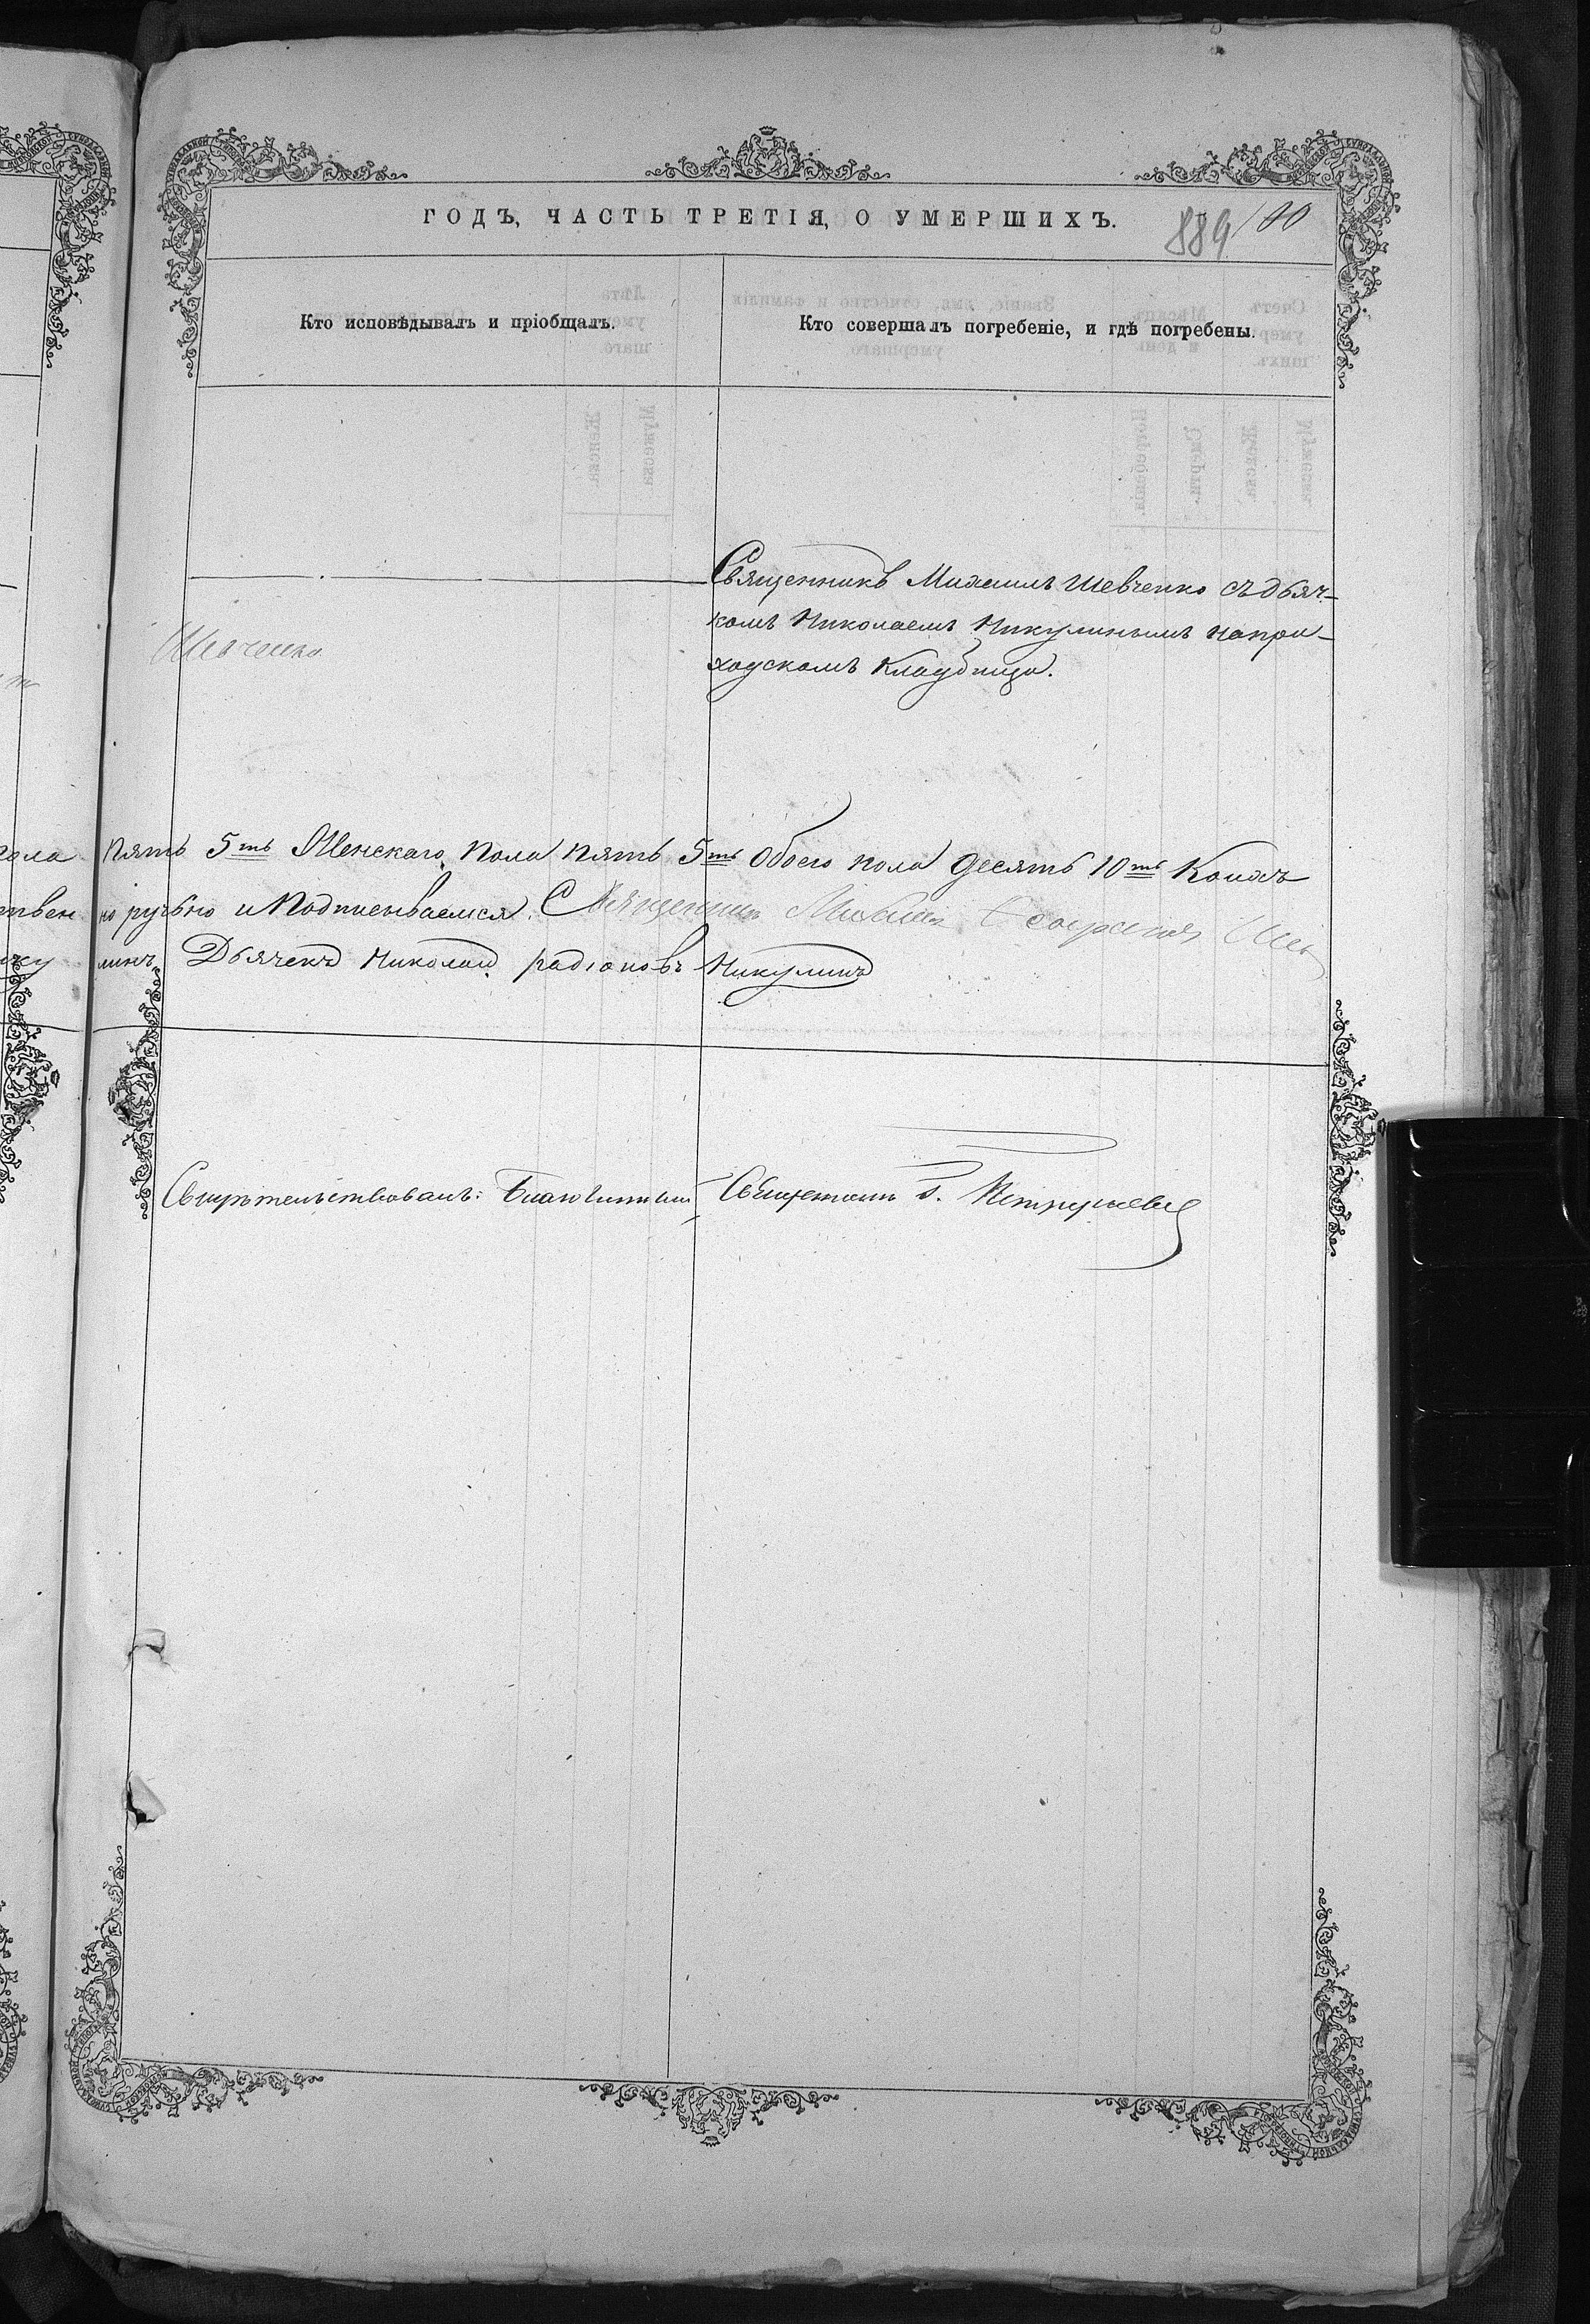 ГОДЪ, ЧАСТЬ ТРЕТІЯ, О УМЕРШИХЪ.
889
Кто исповѣдывалъ и пріобщалъ.
Кто совершалъ погребеніе, и гдѣ погребены.
Священникъ Михаилъ Шевченко съ дьяч-
комъ Николаемъ Никулинымъ на при-
ходскомъ кладбищѣ.
Шевченко
пола пять 5ть Женскаго пола пять 5ть Обоего пола десять 10ть
ствен но ручно и Подписываемся. Священникъ Михаилъ
Дьячекъ Николай радіоновъ Никулинъ
Свидѣтельствовалъ: Благочинный Священникъ